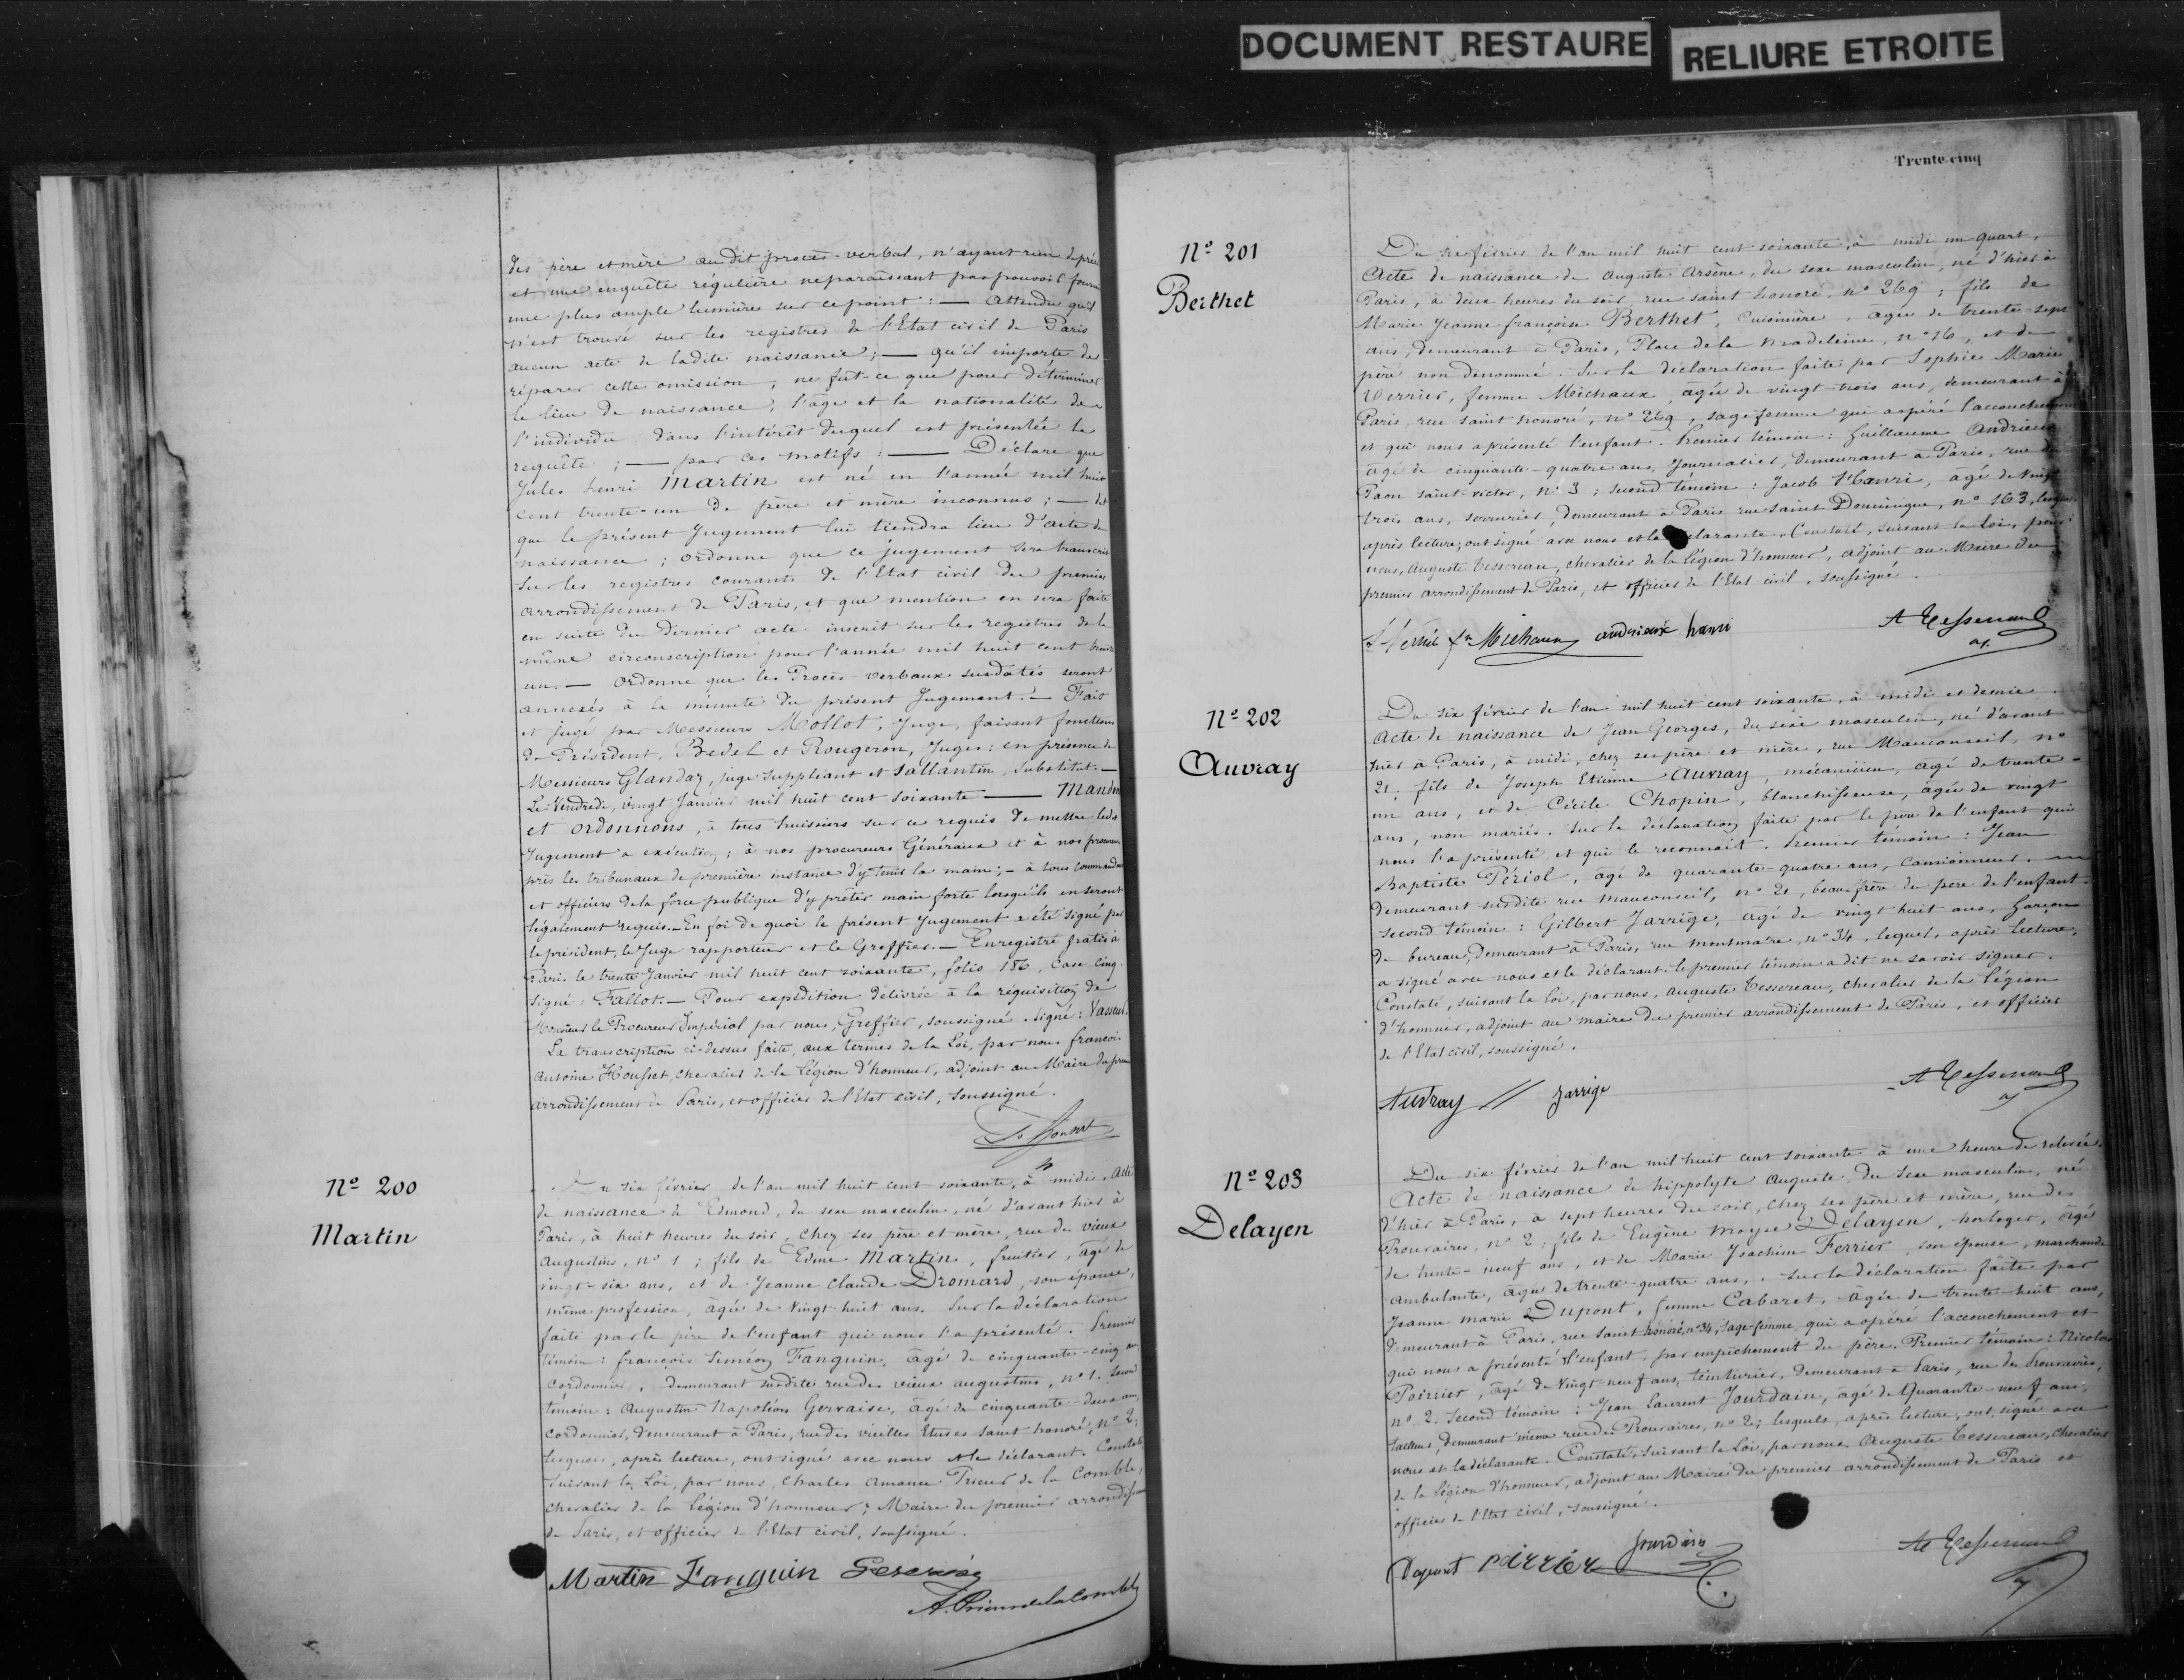 DOCUMENT RESTAURE
RELIURE ETROITE
des père et mère au dit procès-verbal, n'ayant rien de
et une enquête régulière ne paraissant pas pouvoir
une plus ample lumière sur ce point : — Attendu qu'il
n'est trouvé sur les registres de l'Etat civil de Paris
aucun acte de ladite naissance ; — qu'il importe de
réparer cette omission, ne fût-ce que pour déterminer
le lieu de naissance, l'âge et la nationalité de
l'individu dans l'intérêt duquel est présentée la
requête ; — par ces motifs : — Déclare que
Jules henri Martin est né en l'année mil huit
cent trente-un de père et mère inconnus ; — dit
que le présent Jugement lui tiendra lieu d'acte de
naissance ; ordonne que ce jugement sera transcrit
sur les registres courants de l'Etat civil du premier
arrondissement de Paris, et que mention en sera faite
en suite du dernier acte inscrit sur les registres de la
même circonscription pour l'année mil huit cent trente
un. — Ordonne que les Procès-verbaux susdatés seront
annexés à la minute du présent Jugement. — Fait
et jugé par Messieurs Mollot, Juge, faisant fonctions
de Président, Bedel et Rougeron, Juges : en présence de
Messieurs Glandaz, juge suppléant et Sallantin, substitut. —
Le Vendredi, vingt Janvier mil huit cent soixante — Mandons
et ordonnons, à tous huissiers sur ce requis de mettre ledit
Jugement à exécution ; à nos procureurs Généraux et à nos procureurs
près les tribunaux de première instance d'y tenir la main ; — à tous commandants
et officiers de la force publique d'y prêter main forte lorsqu'ils en seront
légalement requis. — En foi de quoi le présent Jugement a été signé par
le président, le Juge rapporteur et le Greffier. — Enregistré gratis à
Paris le trente Janvier mil huit cent soixante, folio 186, case cinq.
Signé : Fallot. — Pour expédition délivrée à la réquisition de
Monsieur le Procureur Impérial par nous, Greffier, soussigné. Signé : Vasseur.
La transcription ci-dessus faite, aux termes de la Loi, par nous françois
Antoine Housset, chevalier de la Légion d'honneur, adjoint au Maire du premier
arrondissement de Paris, et officier de l'Etat civil, soussigné.
Nº 200
Martin
Du six février de l'an mil huit cent soixante, à midi. Acte
de naissance de Edmond, du sexe masculin, né d'avant hier à
Paris, à huit heures du soir, chez ses père et mère, rue des vieux
Augustins, nº 1 ; fils de Edme Martin, fruitier, âgé de
vingt-six ans, et de Jeanne Claude Dromard, son épouse,
même profession, âgée de vingt-huit ans. Sur la déclaration
faite par le père de l'enfant qui nous l'a présenté. Premier
témoin : françois Siméon Fanguin, âgé de cinquante-cinq ans
cordonnier, demeurant susdite rue des vieux augustins, nº 1. Second
témoin : Augustin Napoléon Gervaise, âgé de cinquante-deux ans,
cordonnier, demeurant à Paris, rue des vieilles Etuves saint honoré, nº 2 ;
lesquels, après lecture, ont signé avec nous et le déclarant. Constaté
suivant la Loi, par nous, Charles Amance Prieur de la Comble,
chevalier de la Légion d'honneur, Maire du premier arrondissement
de Paris, et officier de l'Etat civil, soussigné.
Martin Fanguin Gervaise
A. Prieur de la Comble
Trente-cinq
Nº 201
Berthet
Du six février de l'an mil huit cent soixante, à midi un quart,
Acte de naissance de Auguste Arsène, du sexe masculin, né d'hier à
Paris, à deux heures du soir, rue saint honoré, nº 269 ; fils de
Marie Jeanne françoise Berthet, Cuisinière, âgée de trente-sept
ans, demeurant à Paris, Place de la Madeleine, nº 16, et de
père non dénommé. Sur la déclaration faite par Sophie Marie
Verrier, femme Michaux, âgée de vingt-trois ans, demeurant à
Paris, rue saint honoré, nº 269, sage femme qui a opéré l'accouchement
et qui nous a présenté l'enfant. Premier témoin : Guillaume Andrieux
âgé de cinquante-quatre ans, Journalier, demeurant à Paris, rue du
Paon saint-victor, nº 3 ; second témoin : Jacob Hanri, âgé de vingt
trois ans, serrurier, demeurant à Paris rue Saint Dominique, nº 163, lesquels
après lecture, ont signé avec nous et la déclarante. Constaté, suivant la Loi, par
nous, Auguste Tessereau, chevalier de la Légion d'honneur, adjoint au Maire du
premier arrondissement de Paris, et officier de l'Etat civil, soussigné.
Michaux andrieux hanri
A Tessereau
Nº 202
Auvray
Du six février de l'an mil huit cent soixante, à midi et demie.
Acte de naissance de Jean Georges, du sexe masculin, né d'avant
hier à Paris, à midi, chez ses père et mère, rue Mauconseil, nº
21 ; fils de Joseph Etienne Auvray, mécanicien, âgé de trente-
un ans, et de Cécile Chopin, blanchisseuse, âgée de vingt
ans, non mariés. Sur la déclaration faite par le père de l'enfant qui
nous l'a présenté et qui le reconnaît. Premier témoin : Jean
Baptiste Périol, âgé de quarante-quatre ans, camionneur,
demeurant susdite rue mauconseil, nº 21, beau-frère du père de l'enfant.
Second témoin : Gilbert Jarrige, âgé de vingt huit ans, Garçon
de bureau, demeurant à Paris, rue montmartre, nº 34, lequel, après lecture,
a signé avec nous et le déclarant. le premier témoin a dit ne savoir signer.
Constaté, suivant la Loi, par nous, Auguste Tessereau, chevalier de la Légion
d'honneur, adjoint au maire du premier arrondissement de Paris, et officier
de l'Etat civil, soussigné.
Auvray Jarrige
A Tessereau
Nº 203
Delayen
Du six février de l'an mil huit cent soixante à une heure de relevée.
Acte de naissance de hippolyte Auguste, du sexe masculin, né
d'hier à Paris, à sept heures du soir, chez ses père et mère, rue des
Prouvaires, nº 2 ; fils de Eugène Moyse Delayen, horloger, âgé
de trente-neuf ans, et de Marie Joachim Ferrier, son épouse, marchande
ambulante, âgée de trente-quatre ans. Sur la déclaration faite par
Jeanne marie Dupont, femme Cabaret, âgée de trente-huit ans,
demeurant à Paris, rue saint honoré, nº 34, Sage-femme, qui a opéré l'accouchement et
qui nous a présenté l'enfant, par empêchement du père. Premier témoin : Nicolas
Poirrier, âgé de Vingt-neuf ans, teinturier, demeurant à Paris, rue des Prouvaires,
nº 2. Second témoin : Jean Laurent Jourdain, âgé de Quarante-neuf ans,
tailleur, demeurant même rue des Prouvaires, nº 2 ; lesquels, après lecture, ont signé avec
nous et la déclarante. Constaté, suivant la Loi, par nous, Auguste Tessereau, chevalier
de la Légion d'honneur, adjoint au Maire du premier arrondissement de Paris et
officier de l'Etat civil, soussigné.
Dupont poirrier Jourdain
A Tessereau